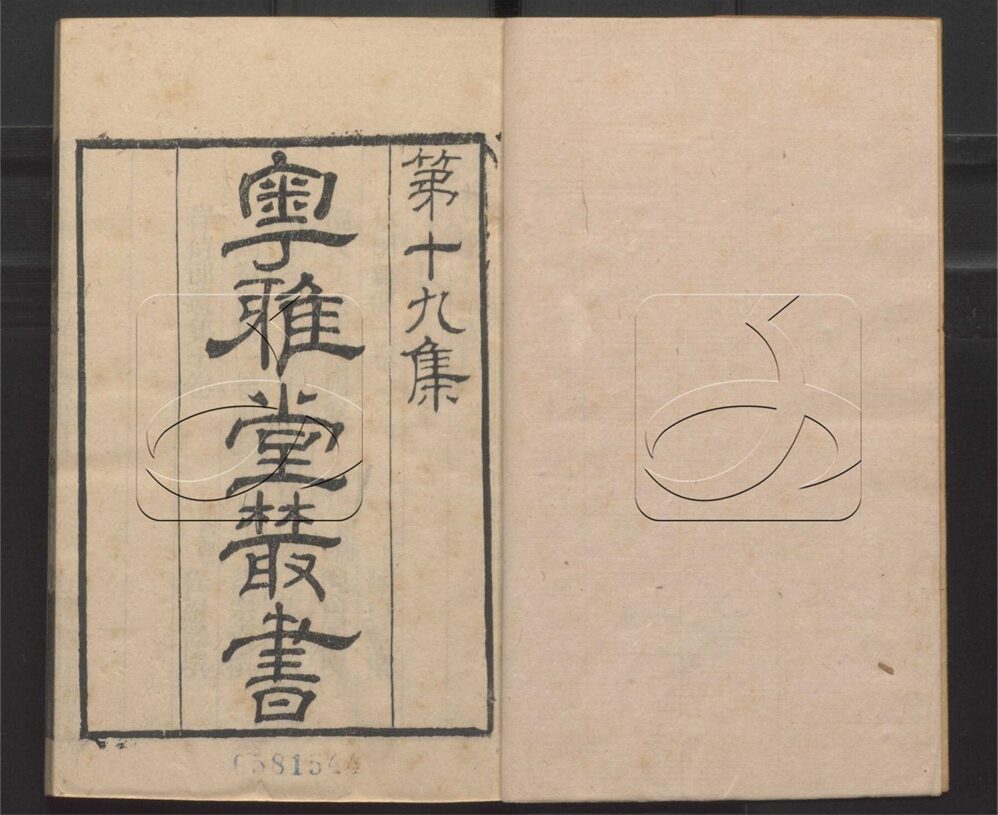 第十九集
粤雅堂叢書